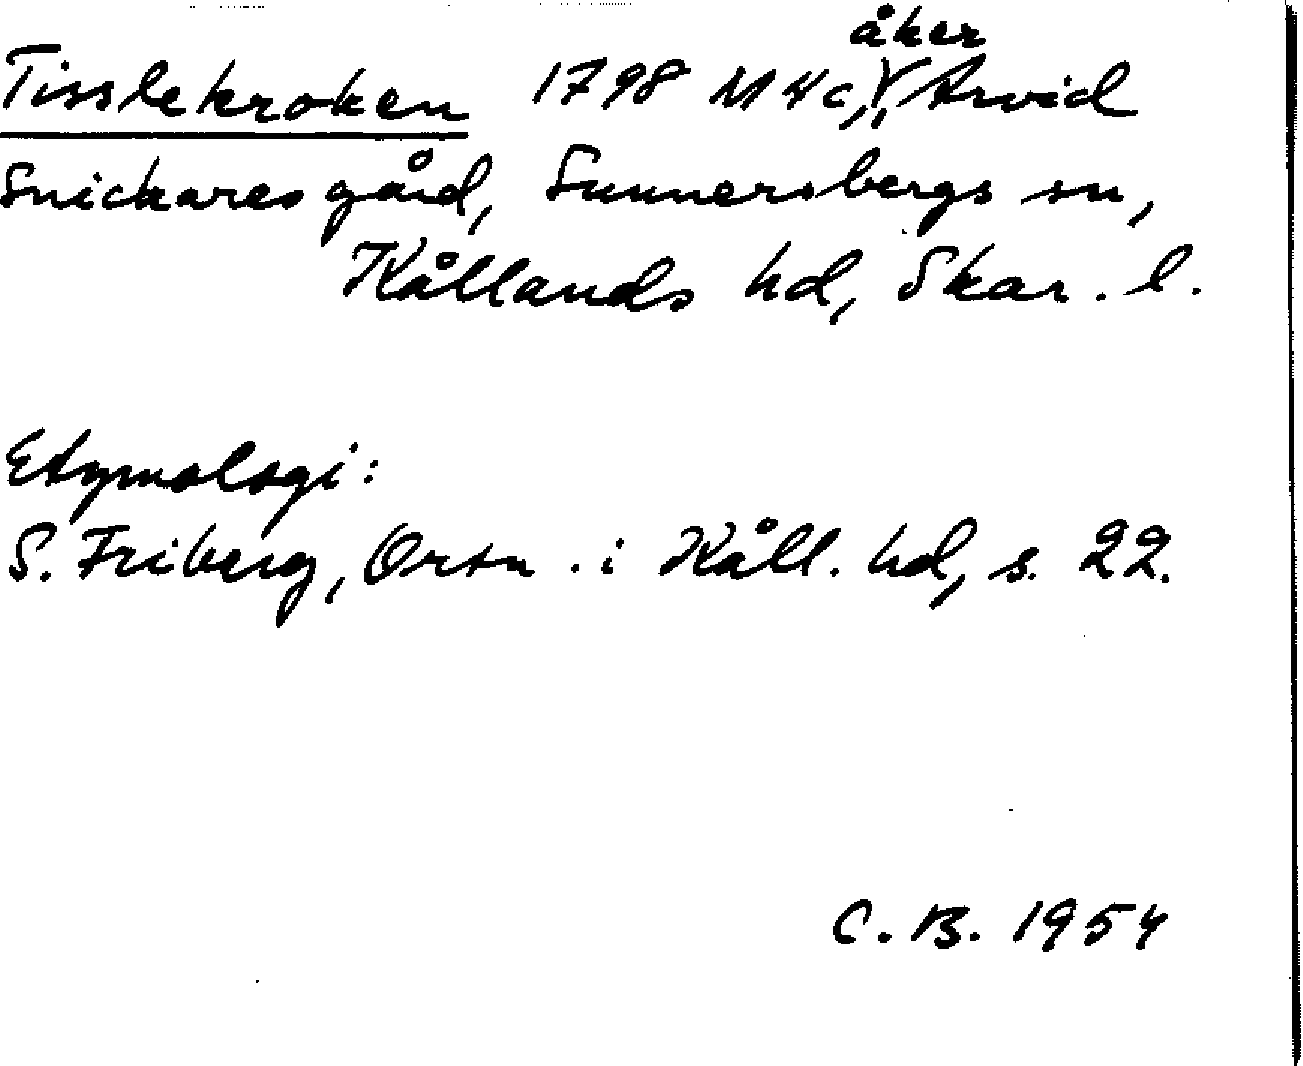 Tisslekroken 1798 M4c, åker, Arvid
Snickares gård, Sunnersbergs sn,
Kållands hd, Skar. l.
Etymologi:
S. Friberg, Ortn. i Kåll. hd, s. 22.
C. B. 1954